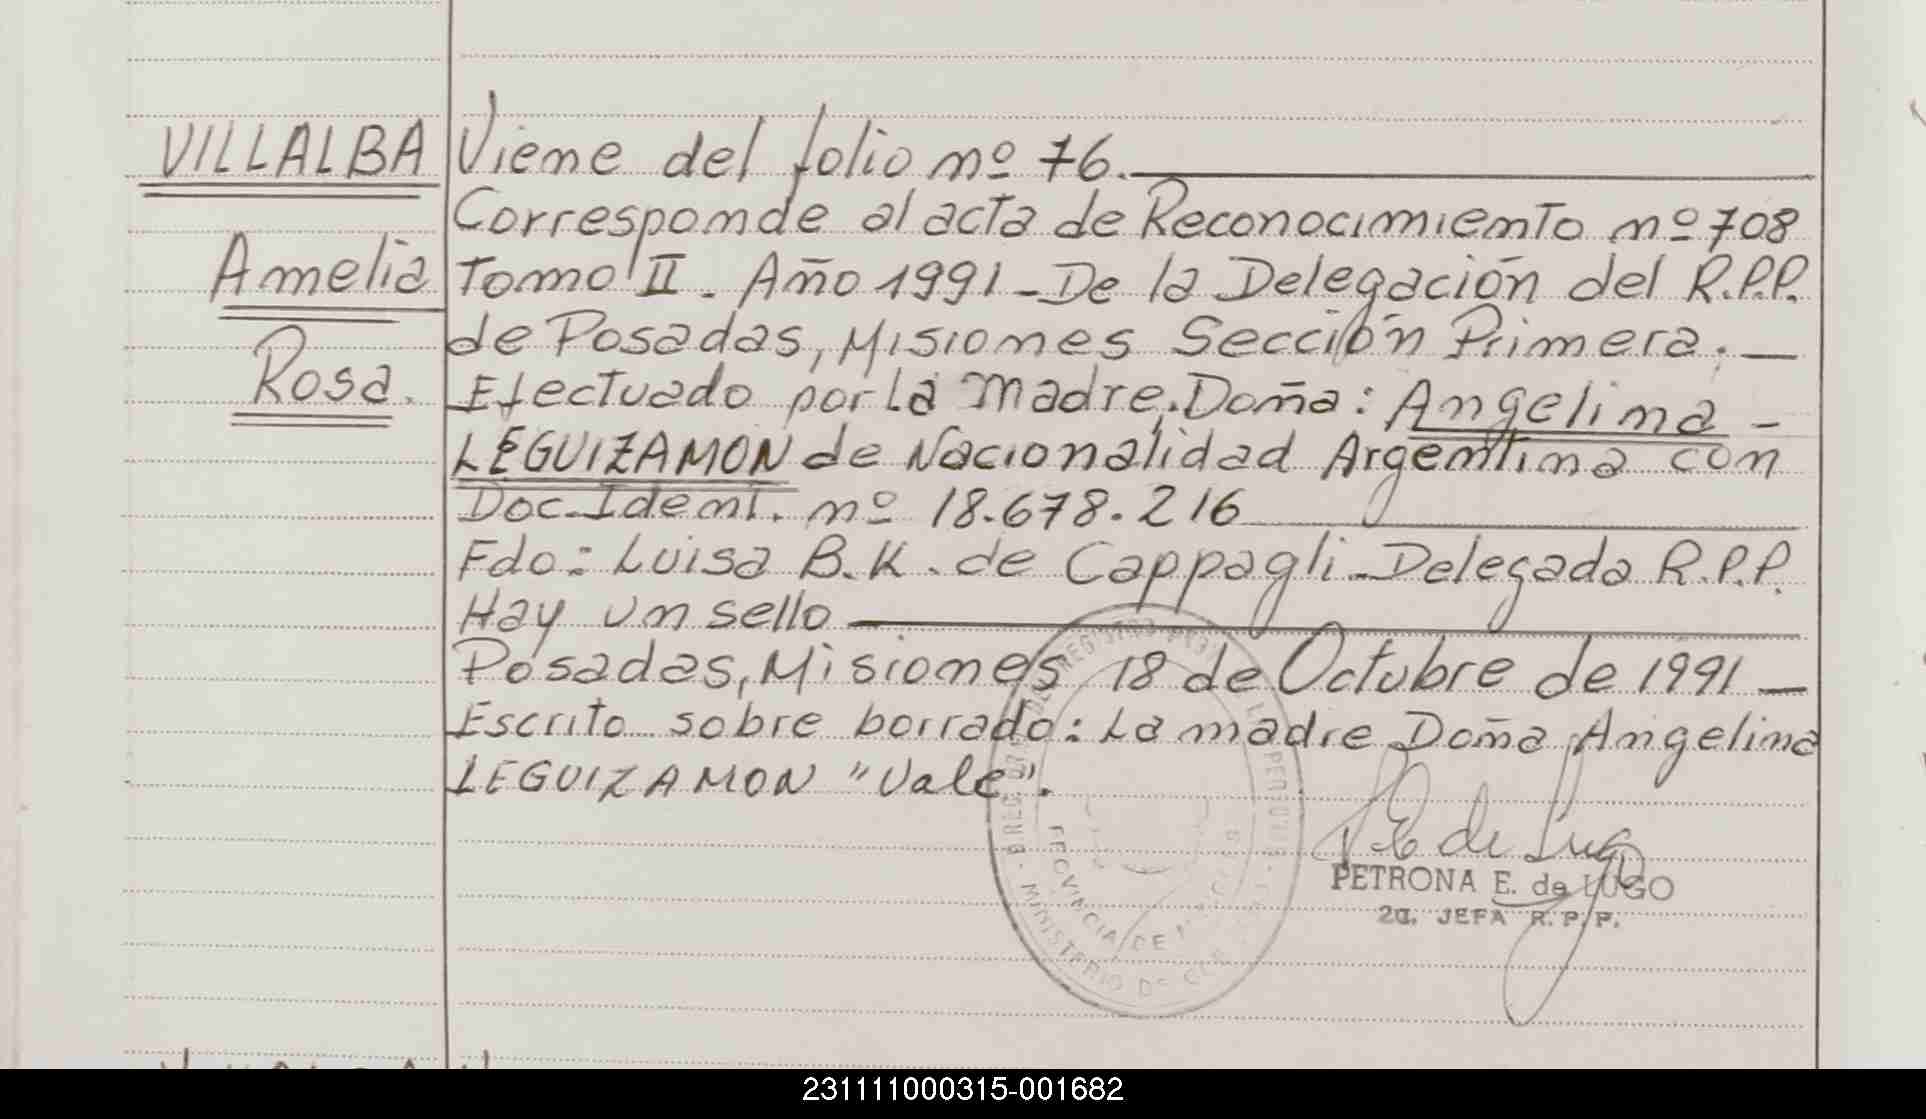 VILLALBA
Amelia
Rosa.
Viene del folio nº 76.
Corresponde al acta de Reconocimiento nº 708
Tomo II. Año 1991 - De la Delegación del R.P.P.
de Posadas, Misiones Sección Primera. —
Efectuado por la Madre. Doña: Angelina -
LEGUIZAMON de Nacionalidad Argentina con
Doc. Ident. nº 18.678.216
Fdo: Luisa B.K. de Cappagli - Delegada R.P.P.
Hay un sello
Posadas, Misiones 18 de Octubre de 1991 —
Escrito sobre borrado: La madre Doña Angelina
LEGUIZAMON "Vale".
PE de Lugo
PETRONA E. de LUGO
2a. JEFA R.P.P.
PROVINCIA DE
MINISTERIO DE
231111000315-001682